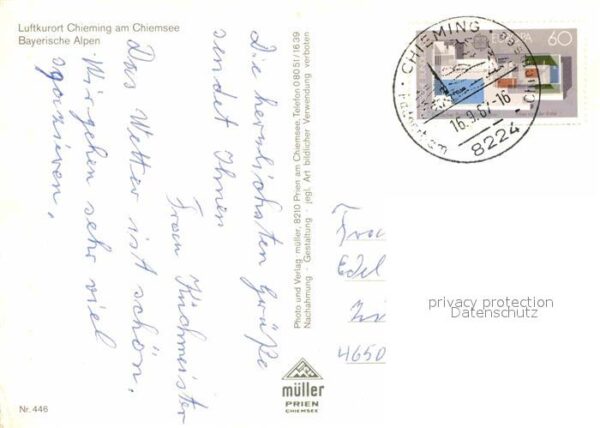 Luftkurort Chieming am Chiemsee
Bayerische Alpen
Die herzlichsten Grüße
sendet Ihnen
Frau Kirchmeister
Das Wetter ist schön.
Wir gehen sehr viel
spazieren.
Photo und Verlag müller, 8210 Prien am Chiemsee, Telefon 0 80 51/16 39
Nachahmung · Gestaltung jegl. Art bildlicher Verwendung verboten
müller
PRIEN
CHIEMSEE
Nr. 446
60
CHIEMING
8224
Frau
Edel
4650
privacy protection
Datenschutz